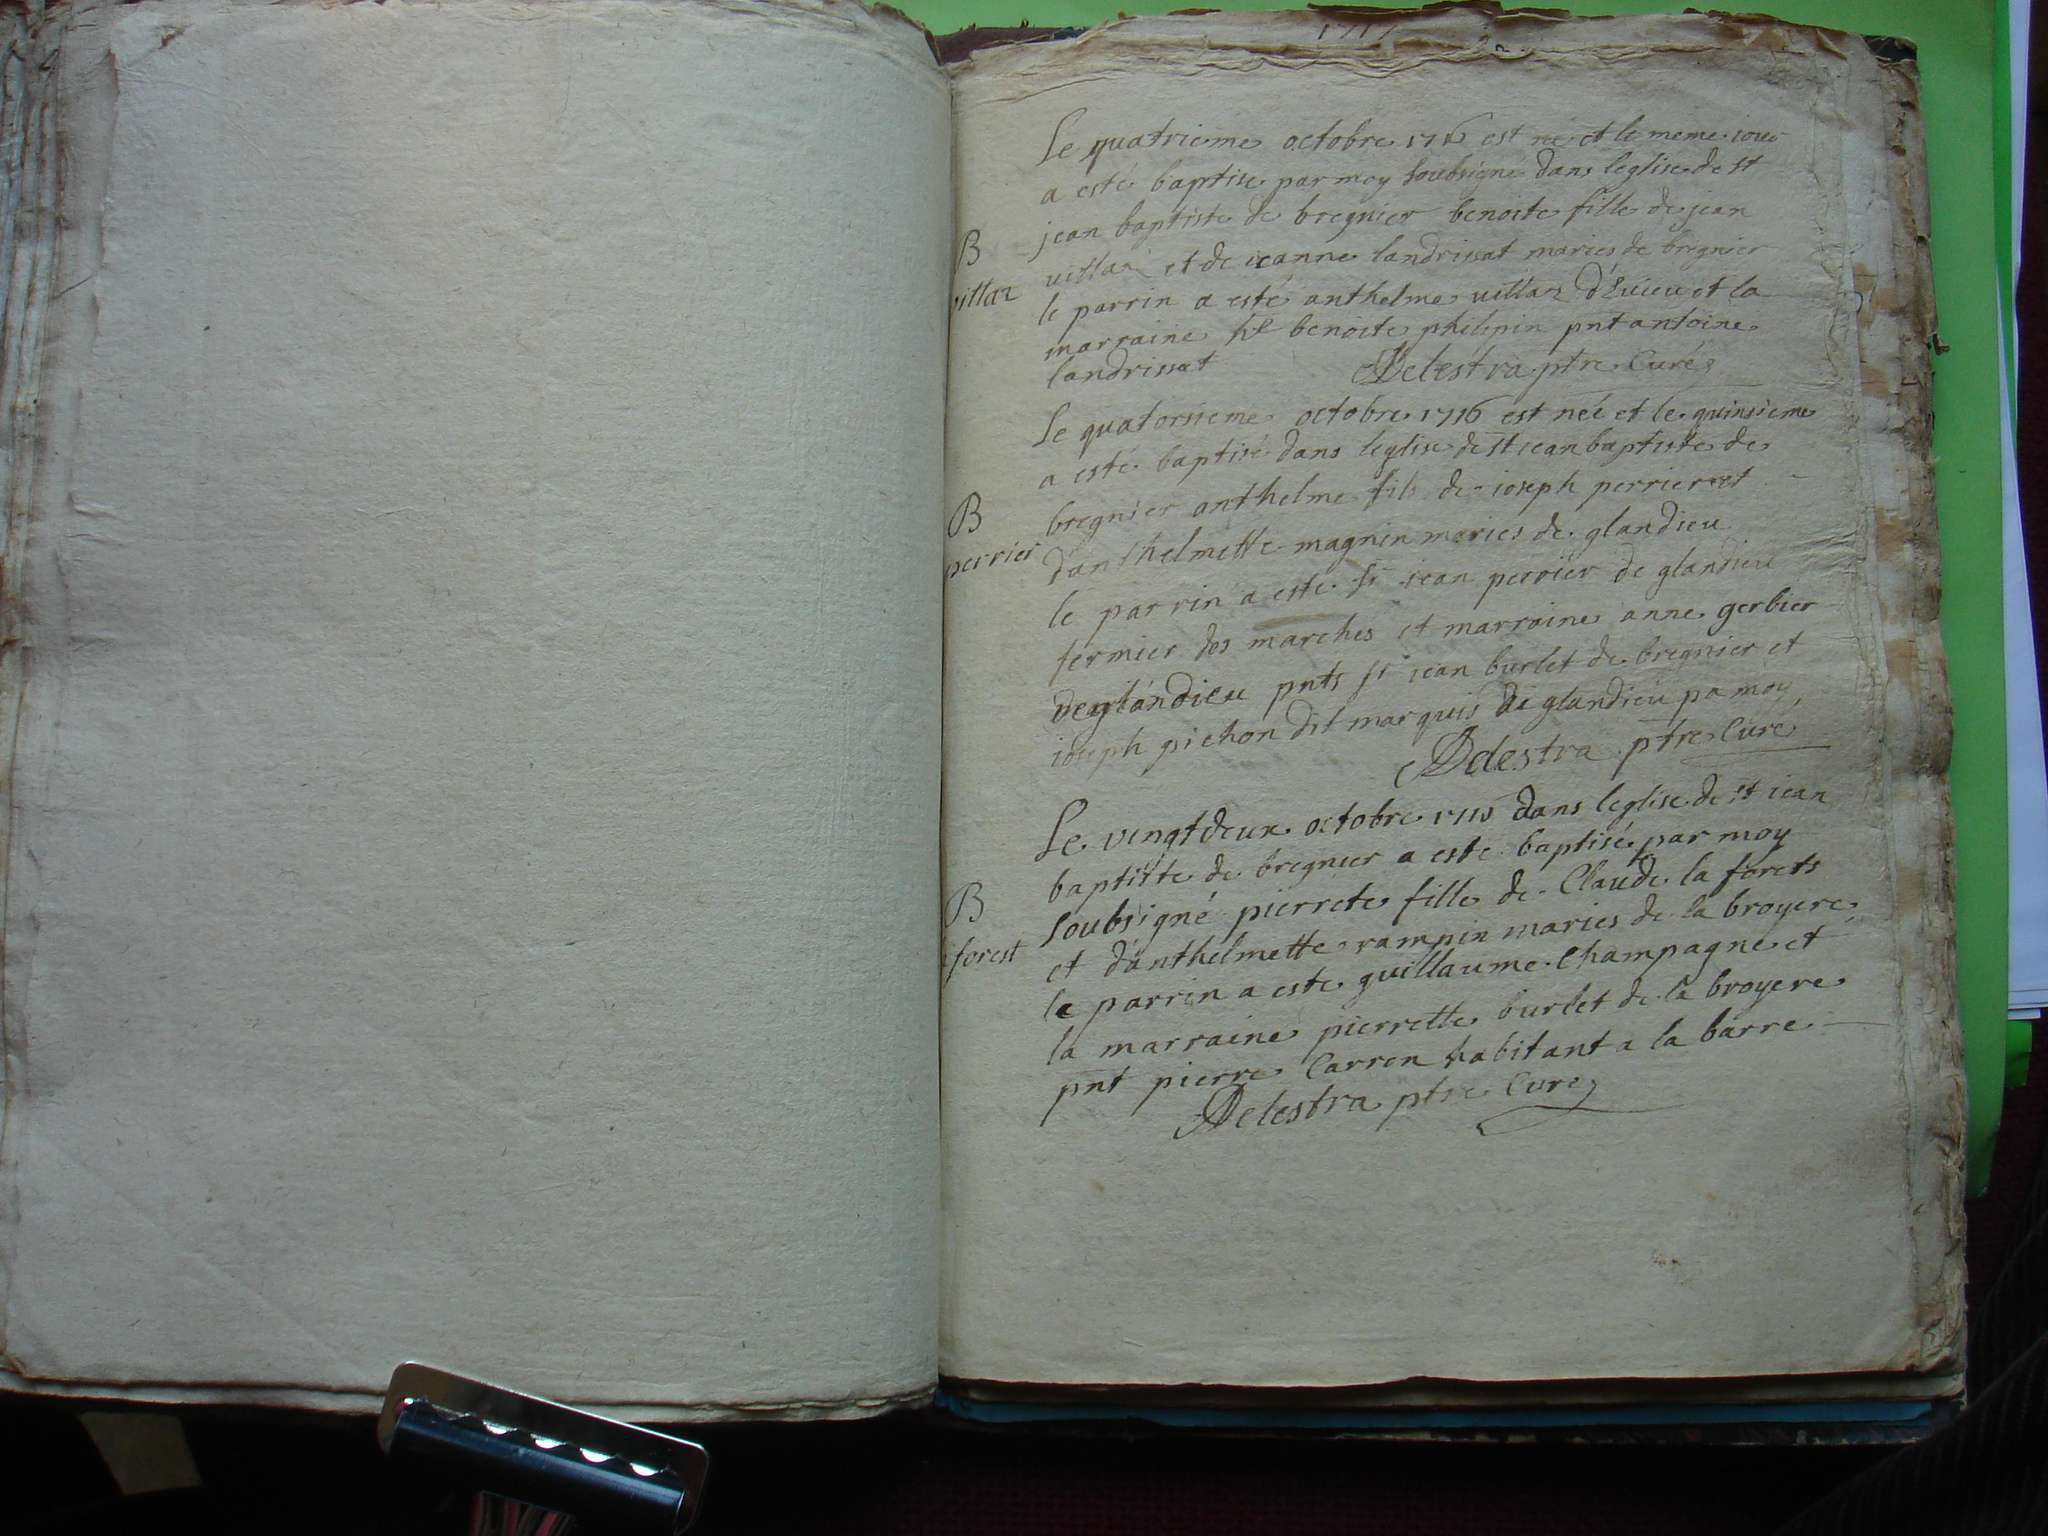 Le quatrieme octobre 1716 est né et le meme iour
a esté baptise par moy soubsigné dans leglise de st
jean baptiste de bregnier benoite fille de jean
B
villaz
villaz et de ieanne landrissat maries de bregnier
le parrin a esté anthelme villaz d'Evieu et la
marraine benoite philipin pnt antoine
landrissat Delestra ptre Curé
Le quatorsieme octobre 1716 est néé et le quinsieme
a esté baptisé dans leglise de st iean baptiste de
B
perrier
bregnier anthelme fils de ioseph perrier et
danthelmette magnin maries de glandieu
le parrin a este sr iean perrier de glandieu
fermier des marches et marraine anne gerbier
deglandieu pnts sr iean burlet de bregnier et
ioseph pichon dit marquis de glandieu pa moy
Delestra ptre Curé
Le vingtdeux octobre dans leglise de st iean
baptiste de bregnier a esté baptisé par moy
B
forest
soubsigné pierrete fille de Claude la forets
et d'anthelmette rampin maries de la broyere
le parrin a este guillaume Champagne et
la marraine pierrette burlet de la broyere
pnt pierre Carron habitant a la barre
Delestra ptre Curé